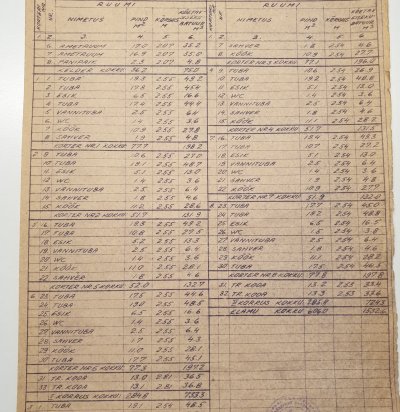 RUUMI
NIMETUS PIND M² KÕRGUS KÖETAV KUBATUUR M³
1. 2. 3. 4. 5. 6.
PANIPAIK 2.3 2.07 4.8
KELDER KOKKU 36.2 75.0
1 1 TUBA 19.3 2.55 49.2
2 TUBA 17.8 2.55 45.4
3 ESIK 6.5 2.55 16.6
4 TUBA 17.4 2.55 44.4
5 VANNITUBA 2.5 2.55 6.4
6 WC 1.4 2.55 3.6
7 KÖÖK 10.9 2.55 27.8
8 SAHVER 1.9 2.55 4.8
KORTER NR.1 KOKKU 77.7 198.2
2 9 TUBA 10.6 2.55 27.0
10 TUBA 19.1 2.55 48.7
11 ESIK 5.1 2.55 13.0
12 WC 1.4 2.55 3.6
13 VANNITUBA 2.5 2.55 6.4
14 SAHVER 1.8 2.55 4.6
15 KÖÖK 11.2 2.55 28.6
KORTER NR.2 KOKKU 51.7 131.9
5 16 TUBA 19.3 2.55 49.2
17 TUBA 10.8 2.55 27.5
18 ESIK 5.2 2.55 13.3
19 VANNITUBA 2.5 2.55 6.4
20 WC 1.4 2.55 3.6
21 KÖÖK 11.0 2.55 28.1
22 SAHVER 1.8 2.55 4.6
KORTER NR.5 KOKKU 52.0 132.7
6 23 TUBA 17.5 2.55 44.6
24 TUBA 2.55 48.5
25 ESIK 6.5 2.55 16.6
26 WC 1.4 2.55 3.6
27 VANNITUBA 2.5 2.55 6.4
28 SAHVER 1.7 2.55 4.3
29 KÖÖK 11.0 2.55 28.1
30 TUBA 17.7 2.55 45.1
KORTER NR.6 KOKKU 77.3 197.2
31 TR. KODA 13.0 2.81 36.5
32 TR. KODA 13.1 2.81 36.8
I KORRUS KOKKU 284.8 733.3
TUBA 19.1 2.54 48.5
RUUMI
NIMETUS PIND M² KÕRGUS KÖETAV KUBATUUR M³
1. 2. 3. 4. 5. 6.
7 SAHVER 1.8 2.54 4.6
8 KÖÖK 10.9 2.54 27.7
KORTER NR.3 KOKKU 77.1 196.0
4 9 TUBA 10.6 2.54 26.9
10 TUBA 19.2 2.54 48.8
11 ESIK 5.1 2.54 13.0
12 WC 1.4 2.54 3.6
13 VANNITUBA 2.5 2.54 6.4
14 SAHVER 1.8 2.54 4.6
15 KÖÖK 11.1 2.54 28.2
KORTER NR.4 KOKKU 51.7 131.5
7 16 TUBA 19.4 2.54 49.3
17 TUBA 10.7 2.54 27.2
18 ESIK 5.1 2.54 13.0
19 VANNITUBA 2.5 2.54 6.4
20 WC 1.4 2.54 3.6
21 SAHVER 1.9 2.54 4.8
22 KÖÖK 10.9 2.54 27.7
KORTER NR.7 KOKKU 51.9 132.0
8 23 TUBA 17.7 2.54 45.0
24 TUBA 19.2 2.54 48.8
25 ESIK 6.5 2.54 16.5
26 WC 1.5 2.54 3.8
27 VANNITUBA 2.5 2.54 6.4
28 SAHVER 1.8 2.54 4.6
29 KÖÖK 11.1 2.54 28.2
30 TUBA 17.5 2.54 44.5
KORTER NR.8 KOKKU 77.8 197.8
31 TR. KODA 13.2 2.53 33.4
32 TR. KODA 13.3 2.53 33.6
II KORRUS KOKKU 285.0 724.3
ELAMU KOKKU 606.0 1532.6